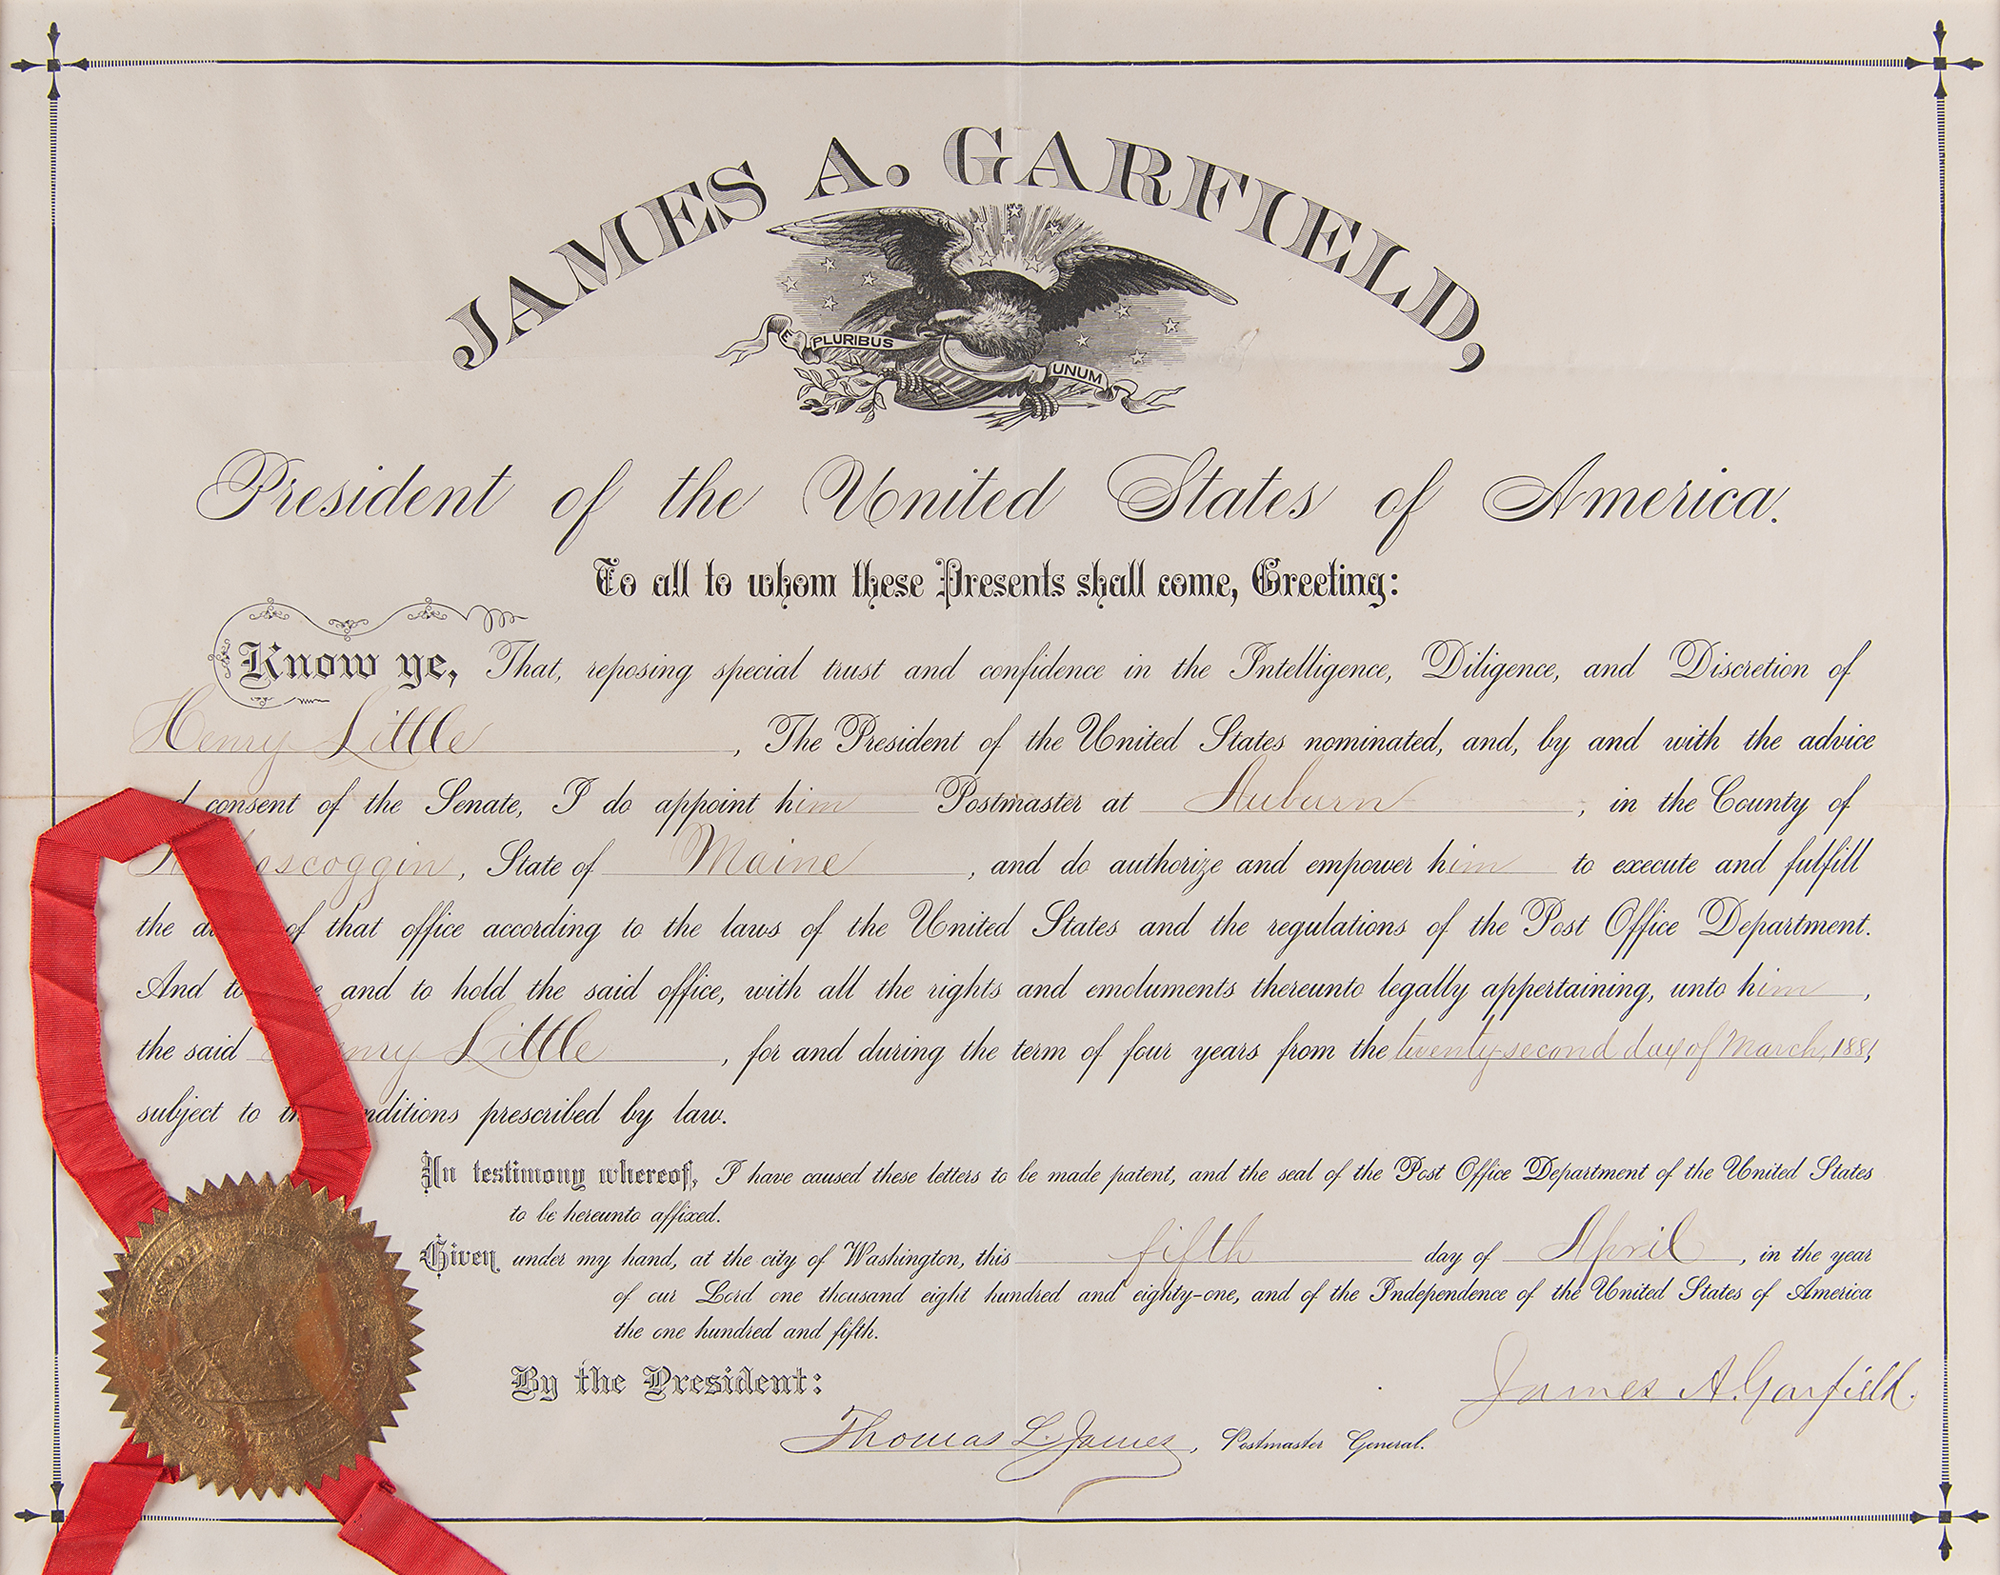 JAMES A. GARFIELD,
E PLURIBUS UNUM
President of the United States of America.
To all to whom these Presents shall come, Greeting:
Know ye, That, reposing special trust and confidence in the Intelligence, Diligence, and Discretion of
Henry Little, The President of the United States nominated, and, by and with the advice
consent of the Senate, I do appoint him Postmaster at Auburn, in the County of
oscoggin, State of Maine, and do authorize and empower him to execute and fulfill
the of that office according to the laws of the United States and the regulations of the Post Office Department.
And to and to hold the said office, with all the rights and emoluments thereunto legally appertaining, unto him,
the said Henry Little, for and during the term of four years from the twenty-second day of March, 1881,
subject to nditions prescribed by law.
In testimony whereof, I have caused these letters to be made patent, and the seal of the Post Office Department of the United States
to be hereunto affixed.
Given under my hand, at the city of Washington, this fifth day of April, in the year
of our Lord one thousand eight hundred and eighty-one, and of the Independence of the United States of America
the one hundred and fifth.
By the President:
James A. Garfield.
Thomas L. James, Postmaster General.